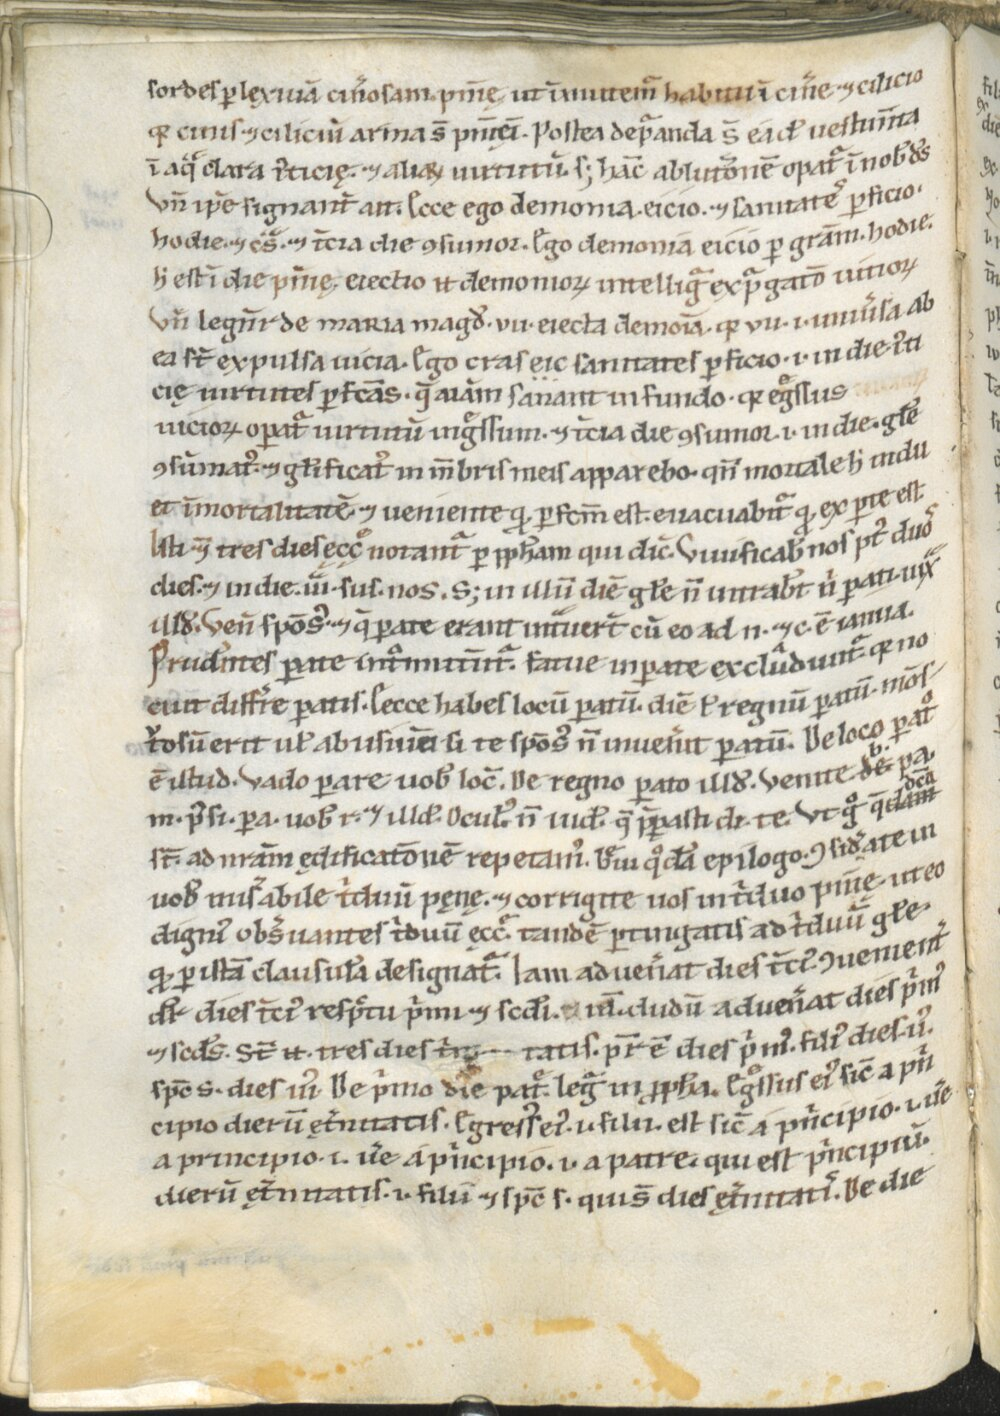 sordes p̲ lęxiuiā cin̄osam. pīnę ut īmutem᷒ habitū ī cin̄e ⁊ cilicio
qꝛ cinis ⁊ ciliciū arma s̄ pīn̄ē. Postea dep̄canda s̄ eadē uestim̄ta
ī aq̄ clara
Vn̄ ip̄e signant̄ ait. Ecce ego demonia eicio. ⁊ sanitates p̲ficio.
hodie. ⁊ c̄s. ⁊ t̄cia die ꝯsumor. Ego demonia eicio p̲ grām. hodie.
h̄ est ī die pīnę. eiectio .n. demonioꝝ intelligit᷑ exp̄gatō uitioꝝ
Vn̄ legit̄ de maria magđ. vii. eiecta demōia. qꝛ vii. i. uniūsa ab
ea st̄ expulsa uicia. Ego cras eic̄ sanitates p̲ficio. i. in die
cię uirtutes p̲fc̄as. q̄ aīam sanant in fundo. qꝛ eg̊ssus
uicioꝝ opat᷑ uirtutū ing̊ssum. ⁊ t̄cia die ꝯsumor. i. in die. gl̄e
ꝯsūmat᷒. ⁊ gl̄ificat᷒ in mēbris meis apparebo. qn̄ mortale h̄ indu
et īmortalitatē. ⁊ ueniente q̊ p̲fcm̄ est. euacuabit᷑ q̊ ex p̲te est
Isti .n. tres dies ęcc̄ę notant᷑ p̲ pp̄ham qui dic̄. Viuificab̄ nos pt̄ duos
dies. ⁊ in die. iii. sus. nos. S; in illū diē gl̄e n̄ intrab̄t n̄ p̲ati. iux̄
illđ. Ven̄ spōs᷒. ⁊ q̄ p̲ate erant intuer̄t cū eo ad n. ⁊ c. ē ianua.
Prudn̄tes p̲ate intm̄ittūt᷑. fatue inp̲ate excludunt᷑. qꝛ no
cuit diffr̄e p̲atis. Ecce habes locū p̲atū. diē ⁊ regnū p̲atū. mōs
t᷑osū erit ut̄ abusiuū si te spōs᷒ n̄ inuen̄it p̲atū. De loco p̲at᷒
ē istud. Vado p̲are uob̄ loc̄. De regno p̲ato illđ. Venite .b. pa.
m. p̄si. pa. uob̄ r. ⁊ illđ. Ocul᷒ n̄ uid̄. q̄ p̄parasti di. te. Vt g̊ q̄ dc̄a
st̄. ad nr̄am ędificatōnē repetam᷒. epilogo. ꝯsid̄ate in
uob̄ mis̄abile t̄duū pęnę. ⁊ corrigite uos in t̄duo pīnę. ut eo
digni᷒ obs̄uantes t̄duū ęcc̄ę. tandē p̲tingatis ad t̄duū gl̄e.
q̊ p̲ istā clausulā designat᷑. Iam aduen̄at dies t̄ci᷒. ꝯuenient̄
dr̄ dies t̄ci᷒ respc̄tu p̄mi ⁊ scđi. dudū aduen̄at dies p̄m᷒
⁊ scđs. St̄ .n. tres dies t̄ni--tatis. pr̄ ē dies p̄m᷒. fili᷒ dies .ii᷒.
spc̄ s. dies iii᷒ De p̄mo die pat᷑. leg᷑ in pp̄ha. Eg̊ssus ei᷒ sic̄ a pn̄
cipio dierū ęt̄nitatis. Egress᷒ ei᷒. i. filii. est sic̄ a pn̄cipio. i. ūe
a principio. i. ūe a pn̄cipio. i. a patre. qui est pn̄cipiū.
dierū ęt̄nitatis. i. filii ⁊ spc̄ s. qui s̄ dies ęt̄nitatis. De die